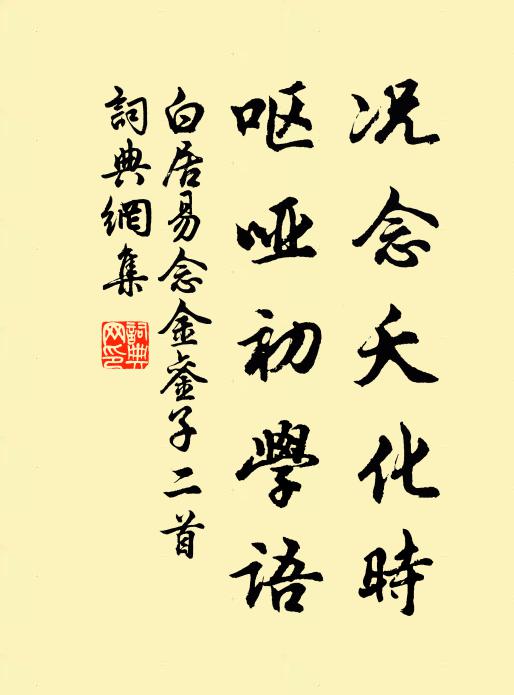 况念夭化時
呕哑初學語
白居易念金銮子二首
詞典網集
詞典網印